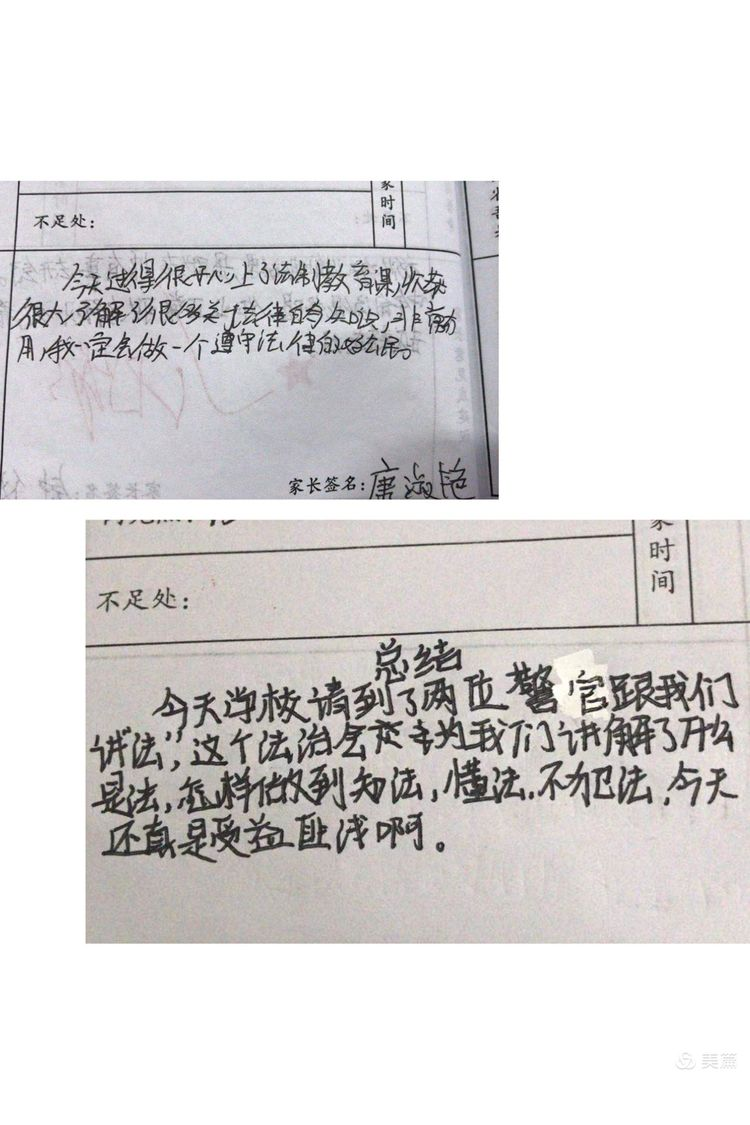 家时间
不足处:
今天过得很开心,上了法制教育课,收获
很大,了解了很多关于法律的知识,非常有
用,我一定会做一个遵守法律的好公民。
家长签名:唐淑艳
家时间
不足处:
总结
今天学校请到了两位警官跟我们
讲"法",这个法治会议主为我们讲解了什么
是法,怎样做到知法,懂法,不犯法,今天
还真是受益匪浅啊。
美篇